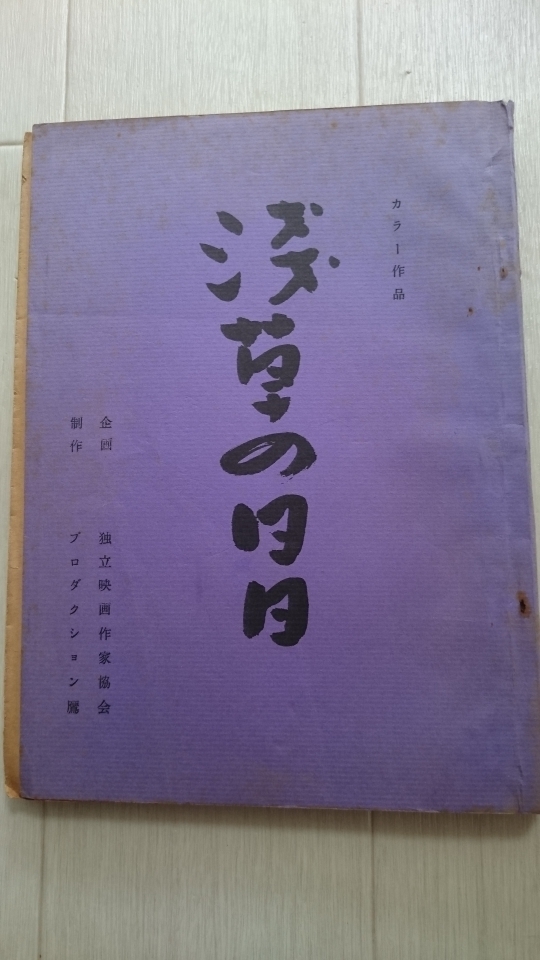 カラー作品
浅草の日日
企画 独立映画作家協会
制作 プロダクション鷹